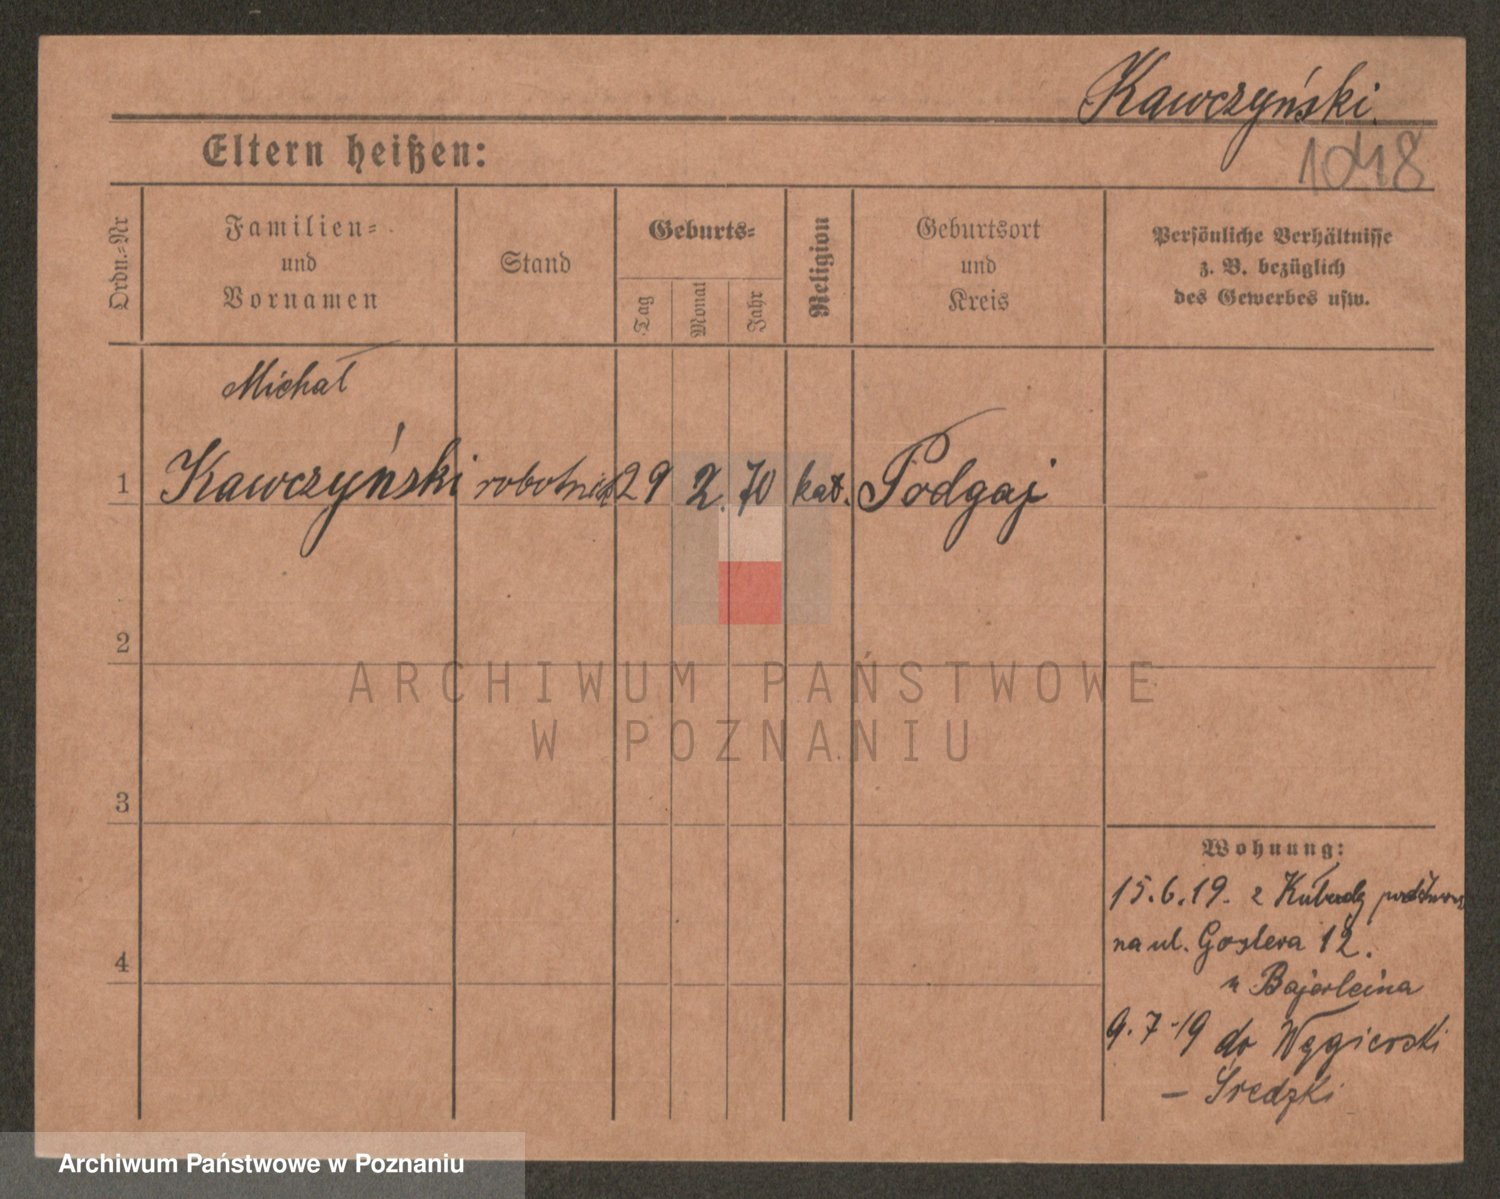 Kawczyński
1048
Eltern heißen:
Ordn.-Nr
Familien-
und
Vornamen
Stand
Geburts-
Tag
Monat
Jahr
Religion
Geburtsort
und
Kreis
Persönliche Verhältnisse
z. B. bezüglich
des Gewerbes usw.
Michał
1 Kawczyński robotnik 29 2. 70 kat. Podgaj
2
3
4
Wohnung:
15.6.19. z
na ul. Goslera 12.
u Bajerleina
9.7-19 do Węgierski
– Średzki
ARCHIWUM PAŃSTWOWE
W POZNANIU
Archiwum Państwowe w Poznaniu